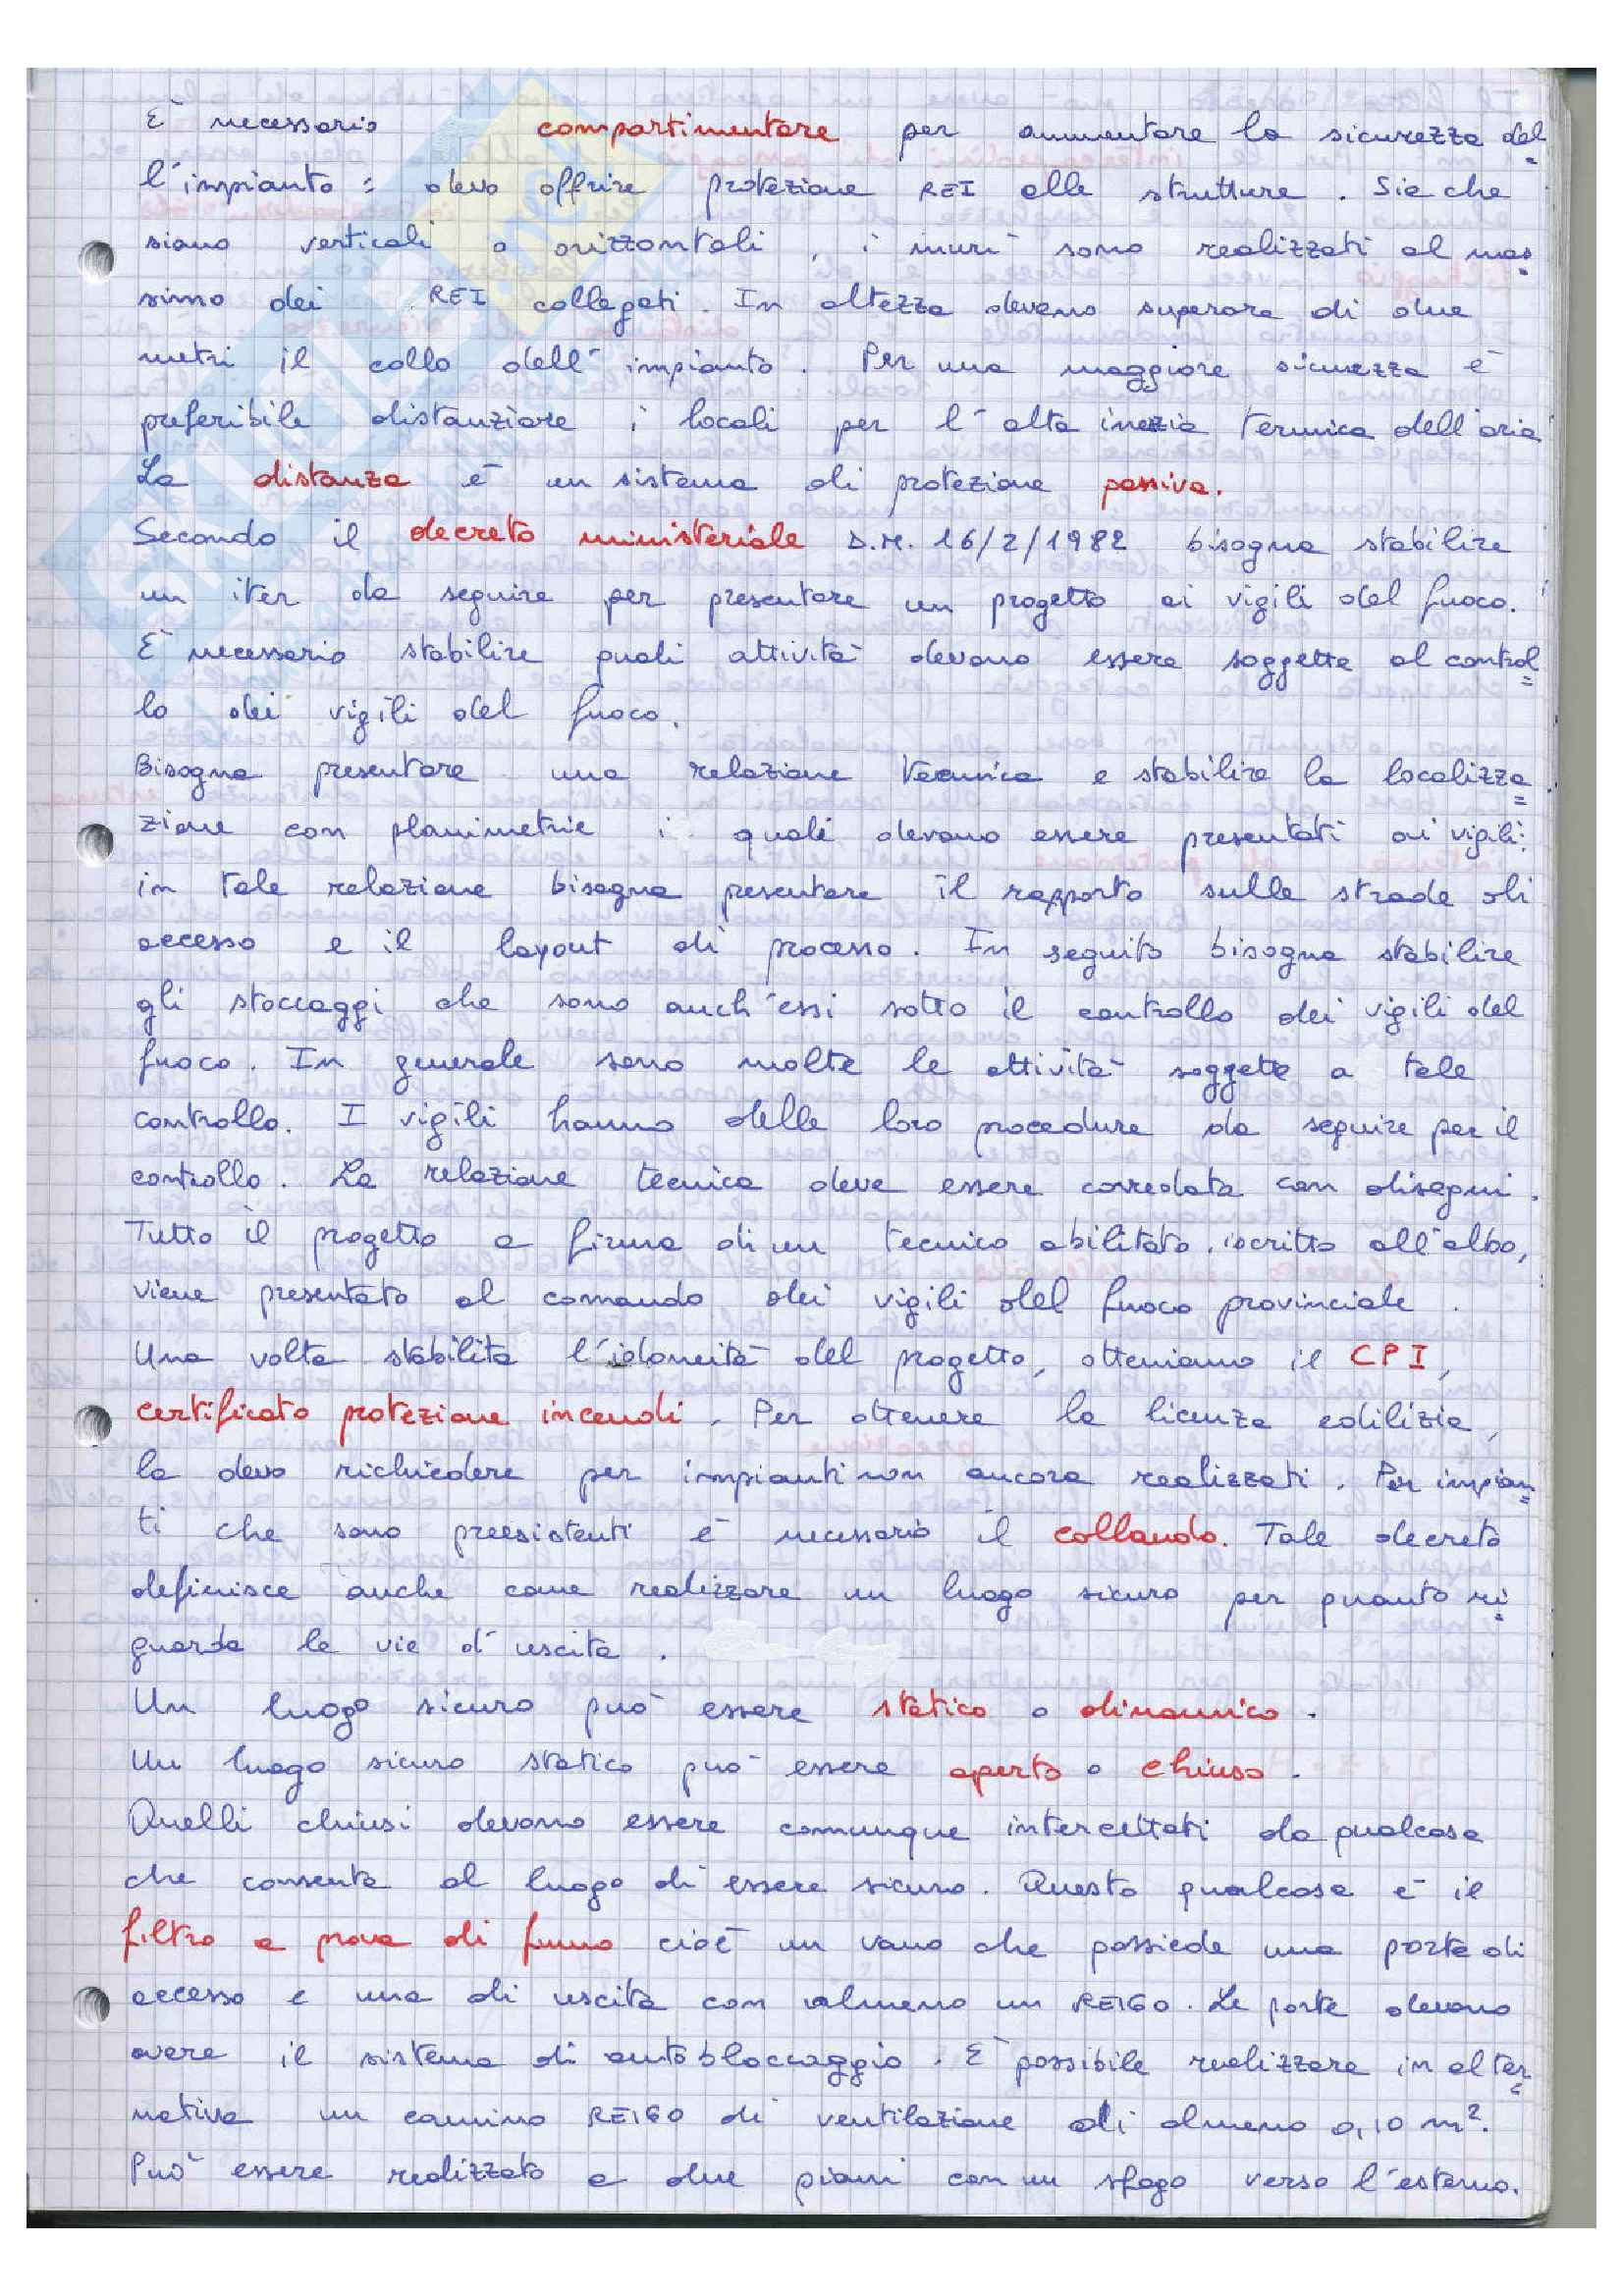 È necessario compartimentare per aumentare la sicurezza del
l'impianto : devo offrire protezione REI alle strutture . Sia che
siano verticali o orizzontali , i muri sono realizzati al mas
simo dei REI collegati . In altezza devono superare di due
metri il collo dell' impianto . Per una maggiore sicurezza è
preferibile distanziare i locali per l' alta inezia termica dell'aria
La distanza è un sistema di protezione passiva.
Secondo il decreto ministeriale D.M. 16/2/1982 bisogna stabilire
un iter da seguire per presentare un progetto ai vigili del fuoco.
È necessario stabilire quali attività devono essere soggette al control
lo dei vigili del fuoco.
Bisogna presentare una relazione tecnica e stabilire la localizza
zione con planimetrie i quali devono essere presentati ai vigili:
in tale relazione bisogna presentare il rapporto sulle strade di
accesso e il layout di processo. In seguito bisogna stabilire
gli stoccaggi che sono anch'essi sotto il controllo dei vigili del
fuoco. In generale sono molte le attività soggette a tale
controllo. I vigili hanno delle loro procedure da seguire per il
controllo. La relazione tecnica deve essere corredata con disegni.
Tutto il progetto a firma di un tecnico abilitato, iscritto all'albo,
viene presentato al comando dei vigili del fuoco provinciale .
Una volta stabilita l'idoneità del progetto, otteniamo il CPI,
certificato protezione incendi . Per ottenere la licenza edilizia,
la devo richiedere per impianti non ancora realizzati. Per impian
ti che sono preesistenti è necessario il collaudo. Tale decreto
definisce anche come realizzare un luogo sicuro per quanto ri
guarda le vie d' uscita .
Un luogo sicuro può essere statico o dinamico .
Un luogo sicuro statico può essere aperto o chiuso .
Quelli chiusi devono essere comunque intercettati da qualcosa
che consente al luogo di essere sicuro. Questo qualcosa è il
filtro a prova di fumo cioè un vano che possiede una porta di
accesso e una di uscita con almeno un REI60. Le porte devono
avere il sistema di autobloccaggio. È possibile realizzare in alter
nativa un camino REI60 di ventilazione di almeno 0,10 m².
Può essere realizzato a due piani con un sfogo verso l'esterno.